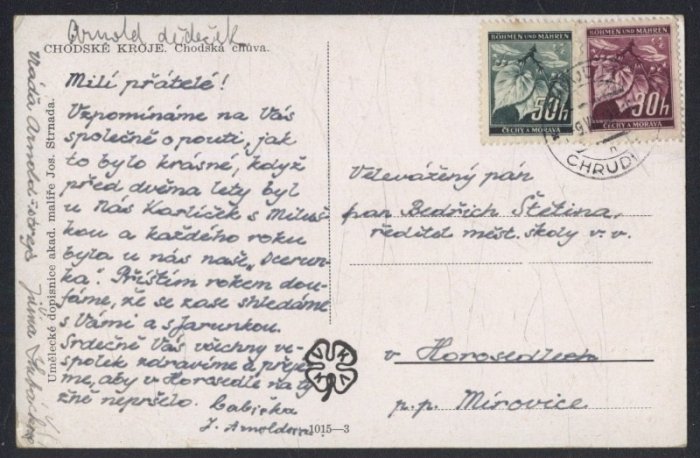 Arnold dědeček
CHODSKÉ KROJE. Chodská chůva.
Milí přátelé!
Vzpomínáme na Vás
společně o pouti, jak
to bylo krásné, když
před dvěma lety byl
u Nás Karlíček s Miluš-
kou a každého roku
byla u nás naše „dcerun-
ka". Příštím rokem dou-
fáme, že se zase shledáme
s Vámi a s Jarunkou.
Srdečně Vás všechny ve-
spolek zdravíme a přeje-
me, aby v Horosedle na tý
žně nepršelo.
Babička
J. Arnoldova
1015—3
Umělecké dopisnice akad. malíře Jos. Strnada.
Arnold-strejc
BÖHMEN UND MÄHREN
50h
ČECHY A MORAVA
BÖHMEN UND MÄHREN
30h
ČECHY A MORAVA
CHRUDI
Velevážený pán
pan Bedřich Štětina,
ředitel měst. školy v. v.
v Horosedlech
p. p. Mirovice
V K V K